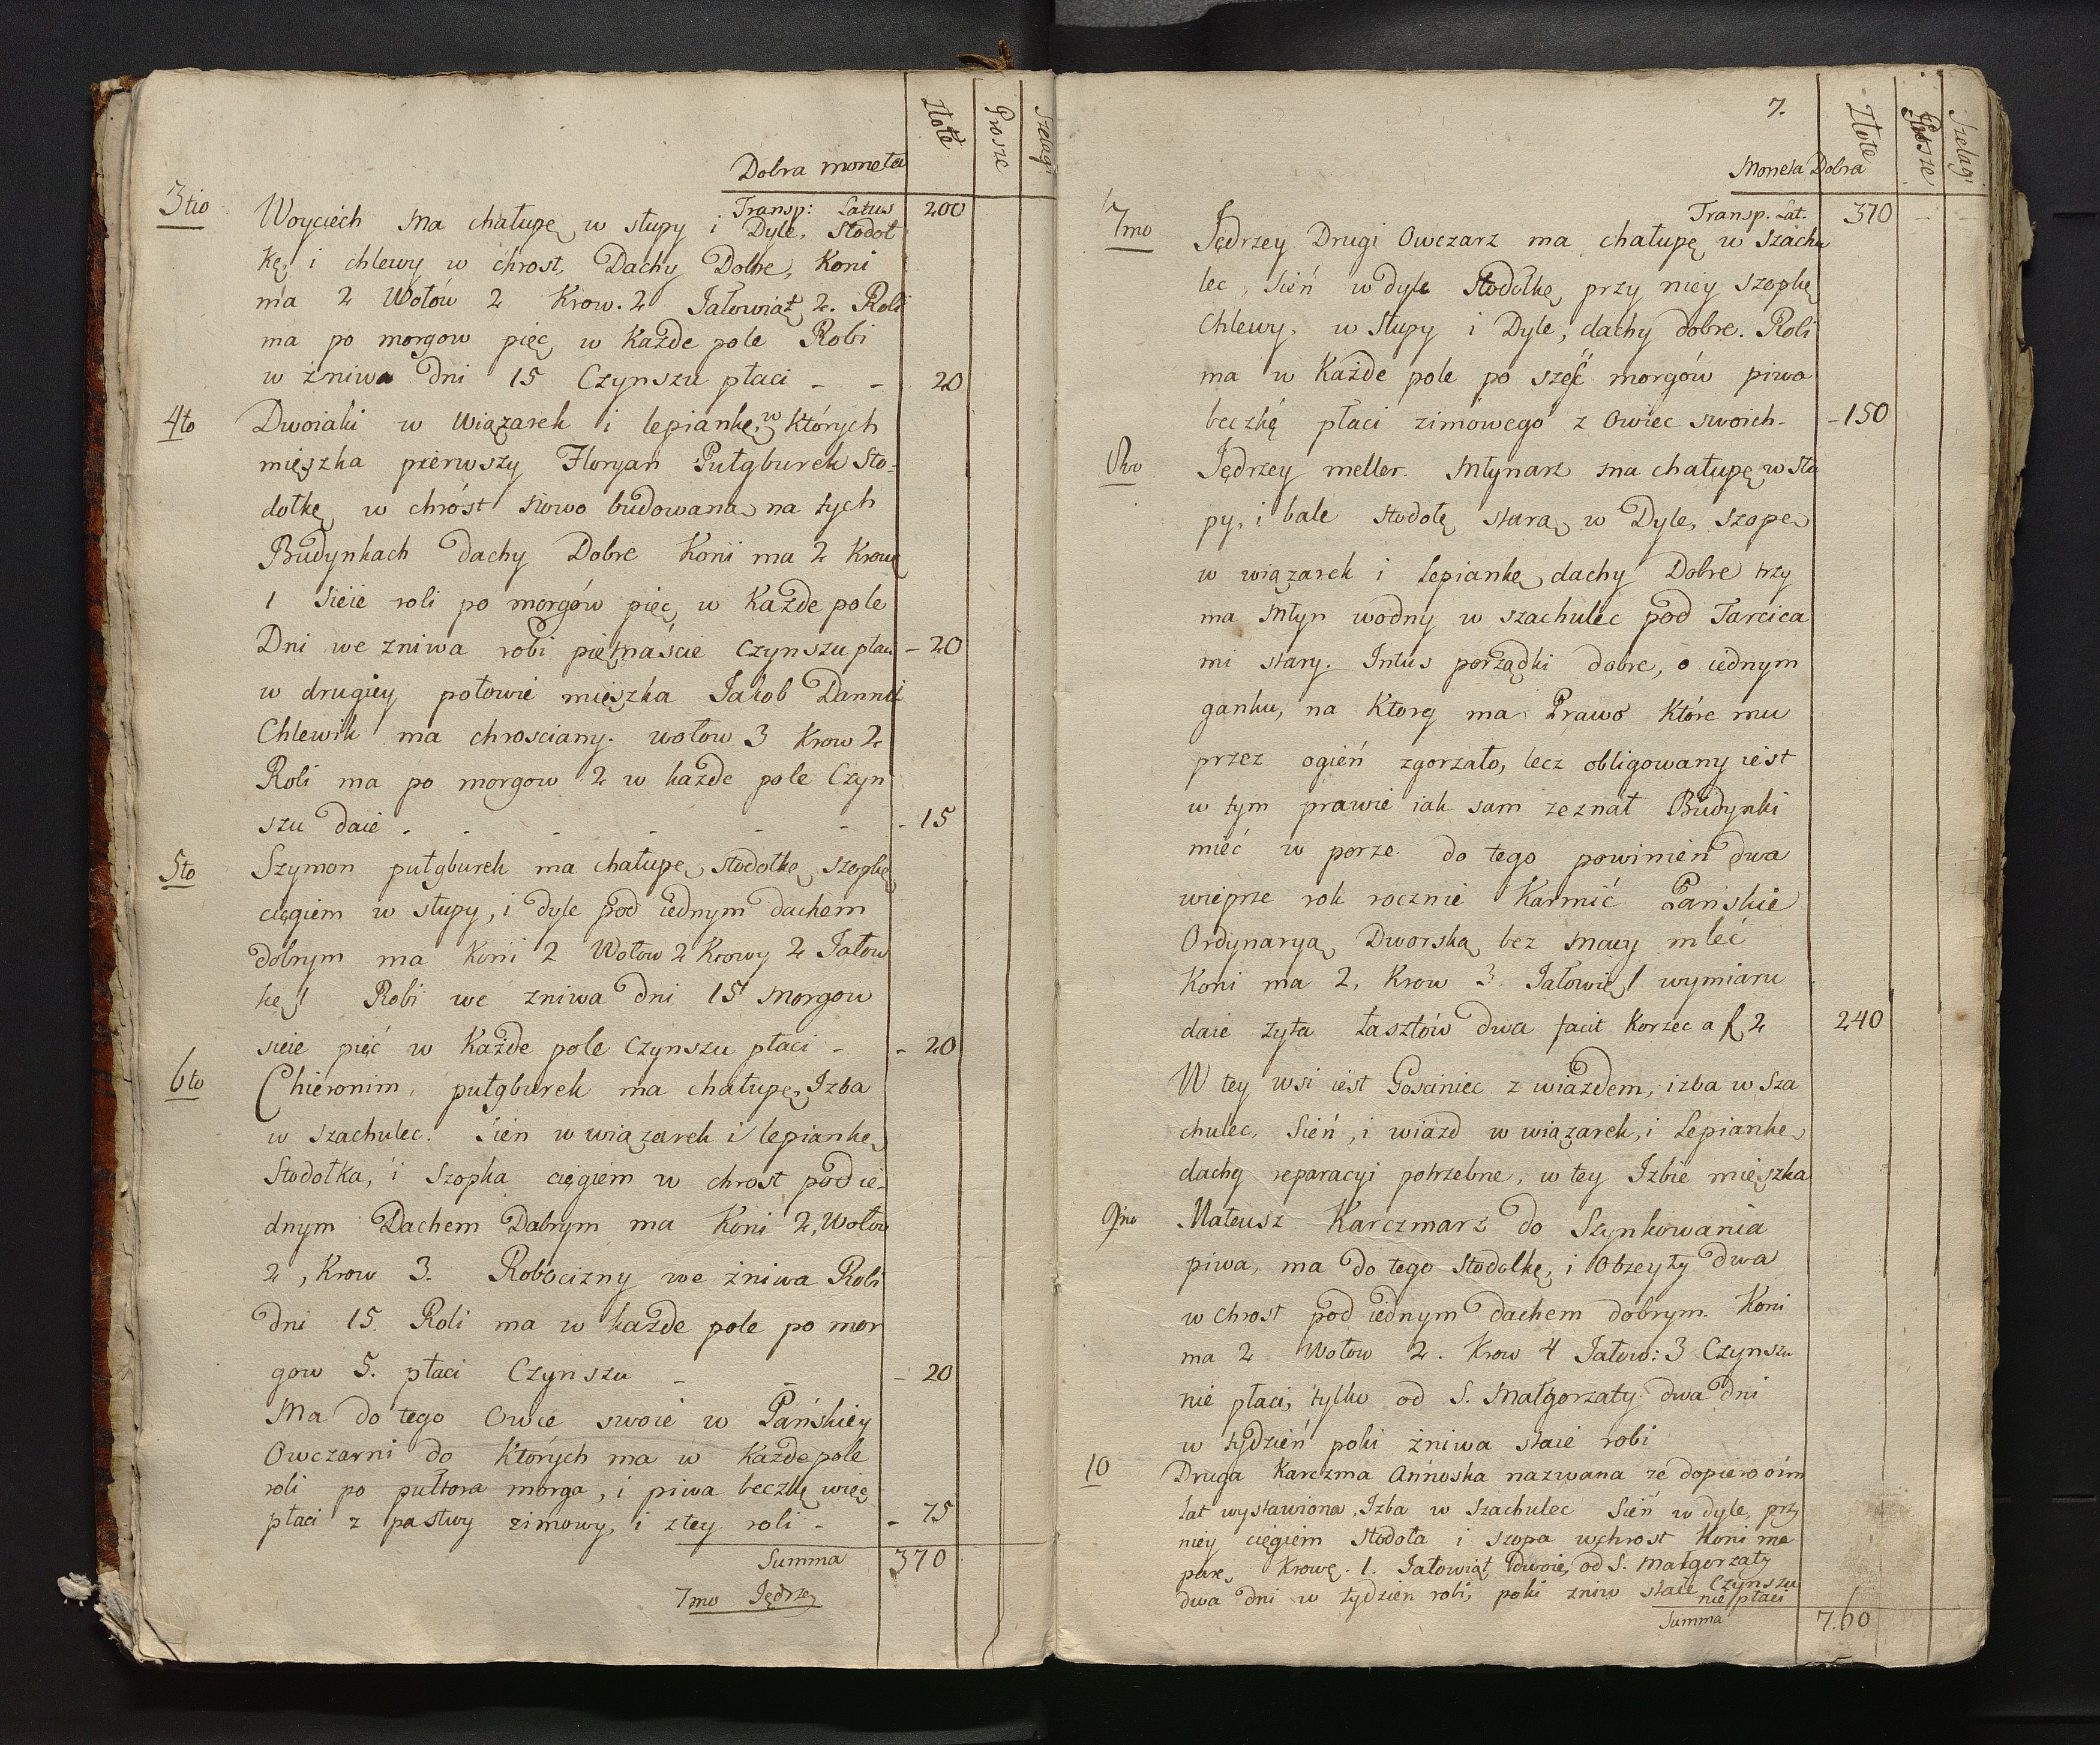 Złote Grosze Szelągi
Dobra moneta
Transp: Latus 200
3tio Woyciech ma chałupę w słupy i Dyle, Stodoł
kę, i chlewy w chrost, Dachy Dobre, Koni
ma 2 Wołów 2 Krow. 2 Jałowiąt 2. Roli
ma po morgow pięc w Każde pole Robi
w żniwa dni 15 Czynszu płaci - - 20
4to Dwoiaki w Wiązarek i lepiankę, w których
mięszka pierwszy Floryan Pułgburek Sto-
dołkę w chróst nowo budowaną na tych
Budynkach dachy Dobre Koni ma 2 Krowę
1 Sieie roli po morgów pięc w Każde pole
Dni we zniwa robi piętnaście Czynszu płaci - 20
w drugiey połowie mięszka Jakob Dannki
Chlewik ma chrosciany. wołow 3 Krow 2
Roli ma po morgow 2 w każde pole Czyn
szu daie - - - - - - 15
5to Szymon pułgburek ma chałupę, stodołkę szopkę
cięgiem w słupy, i dyle pod iednym dachem
dobrym ma Koni 2 Wołow 2 Krowy 2 Jałow
kę 1 Robi we zniwa dni 15 morgow
sieie pięć w Każde pole Czynszu płaci - - 20
6to Chieronim, pułgburek ma chałupę, Izba
w szachulec. Sien w wiązarek i lepiankę
Stodołka, i Szopka cięgiem w chrost pod ie-
dnym Dachem Dabrym ma Koni 2, Wołow
2, Krow 3. Robocizny we żniwa Robi
dni 15. Roli ma w każde pole po mor
gow 5. płaci Czynszu - - - 20
Ma do tego Owce swoie w Pańskiey
Owczarni do Których ma w Każde pole
roli po pułtora morga, i piwa beczkę więc
płaci z pastwy zimowy, i z tey roli - - 75
Summa 370
7mo Jędrzey
7.
Złote Grosze Szelągi
Moneta Dobra
Transp. Lat. 370 - -
7mo Jędrzey Drugi Owczarz ma chałupę w szachu
lec, Sień w dyle Stodołkę przy niey szopkę
Chlewy, w słupy i Dyle, dachy dobre. Roli
ma w Każde pole po sześć morgów piwa
beczkę płaci zimowego z Owiec swoich - - 150
8vo Jędrzey meller. Młynarz ma chałupę w słu
py, i bale stodołę starą w Dyle, szopę
w wiązarek i lepiankę, dachy Dobre trzy
ma Młyn wodny w szachulec pod Tarcica
mi stary. Intus porządki dobre, o iednym
ganku, na Ktorę ma Prawo które mu
przez ogień zgorzało, lecz obligowany iest
w tym prawie iak sam zeznał Budynki
mieć w porze. do tego powinien dwa
wieprze rok rocznie Karmić Pańskie
Ordynaryą Dworską bez macy mleć
Koni ma 2, Krow 3 Jałowię 1 wymiaru
daie żyta łasztów dwa facit Korzec a f 2 240
W tey wsi iest Gosciniec z wiazdem, izba w Sza
chulec, Sień, i wiazd w wiązarek, i Lepiankę
dachy reparacyi potrzebne, w tey Izbie mięszka
9no Mateusz Karczmarz do Szynkowania
piwa, ma do tego Stodołkę, i Obzeyty dwa
w chrost pod iednym dachem dobrym. Koni
ma 2 Wołow 2. Krow 4 Jałow: 3 Czynszu
nie płaci, tylko od S. Małgorzaty dwa dni
w tydzień poki żniwa staie robi
10 Druga Karczma nazwana ze dopiero oim
lat wystawiona, Izba w szachulec Sień w dyle, przy
niey cięgiem stodoła i szopa w chrost Koni ma
parę, Krowę. 1. Jałowiąt dwoie, od S. Małgorzaty
dwa dni w tydzien robi, poki zniw staie Czynszu
nie płaci
Summa 7.60